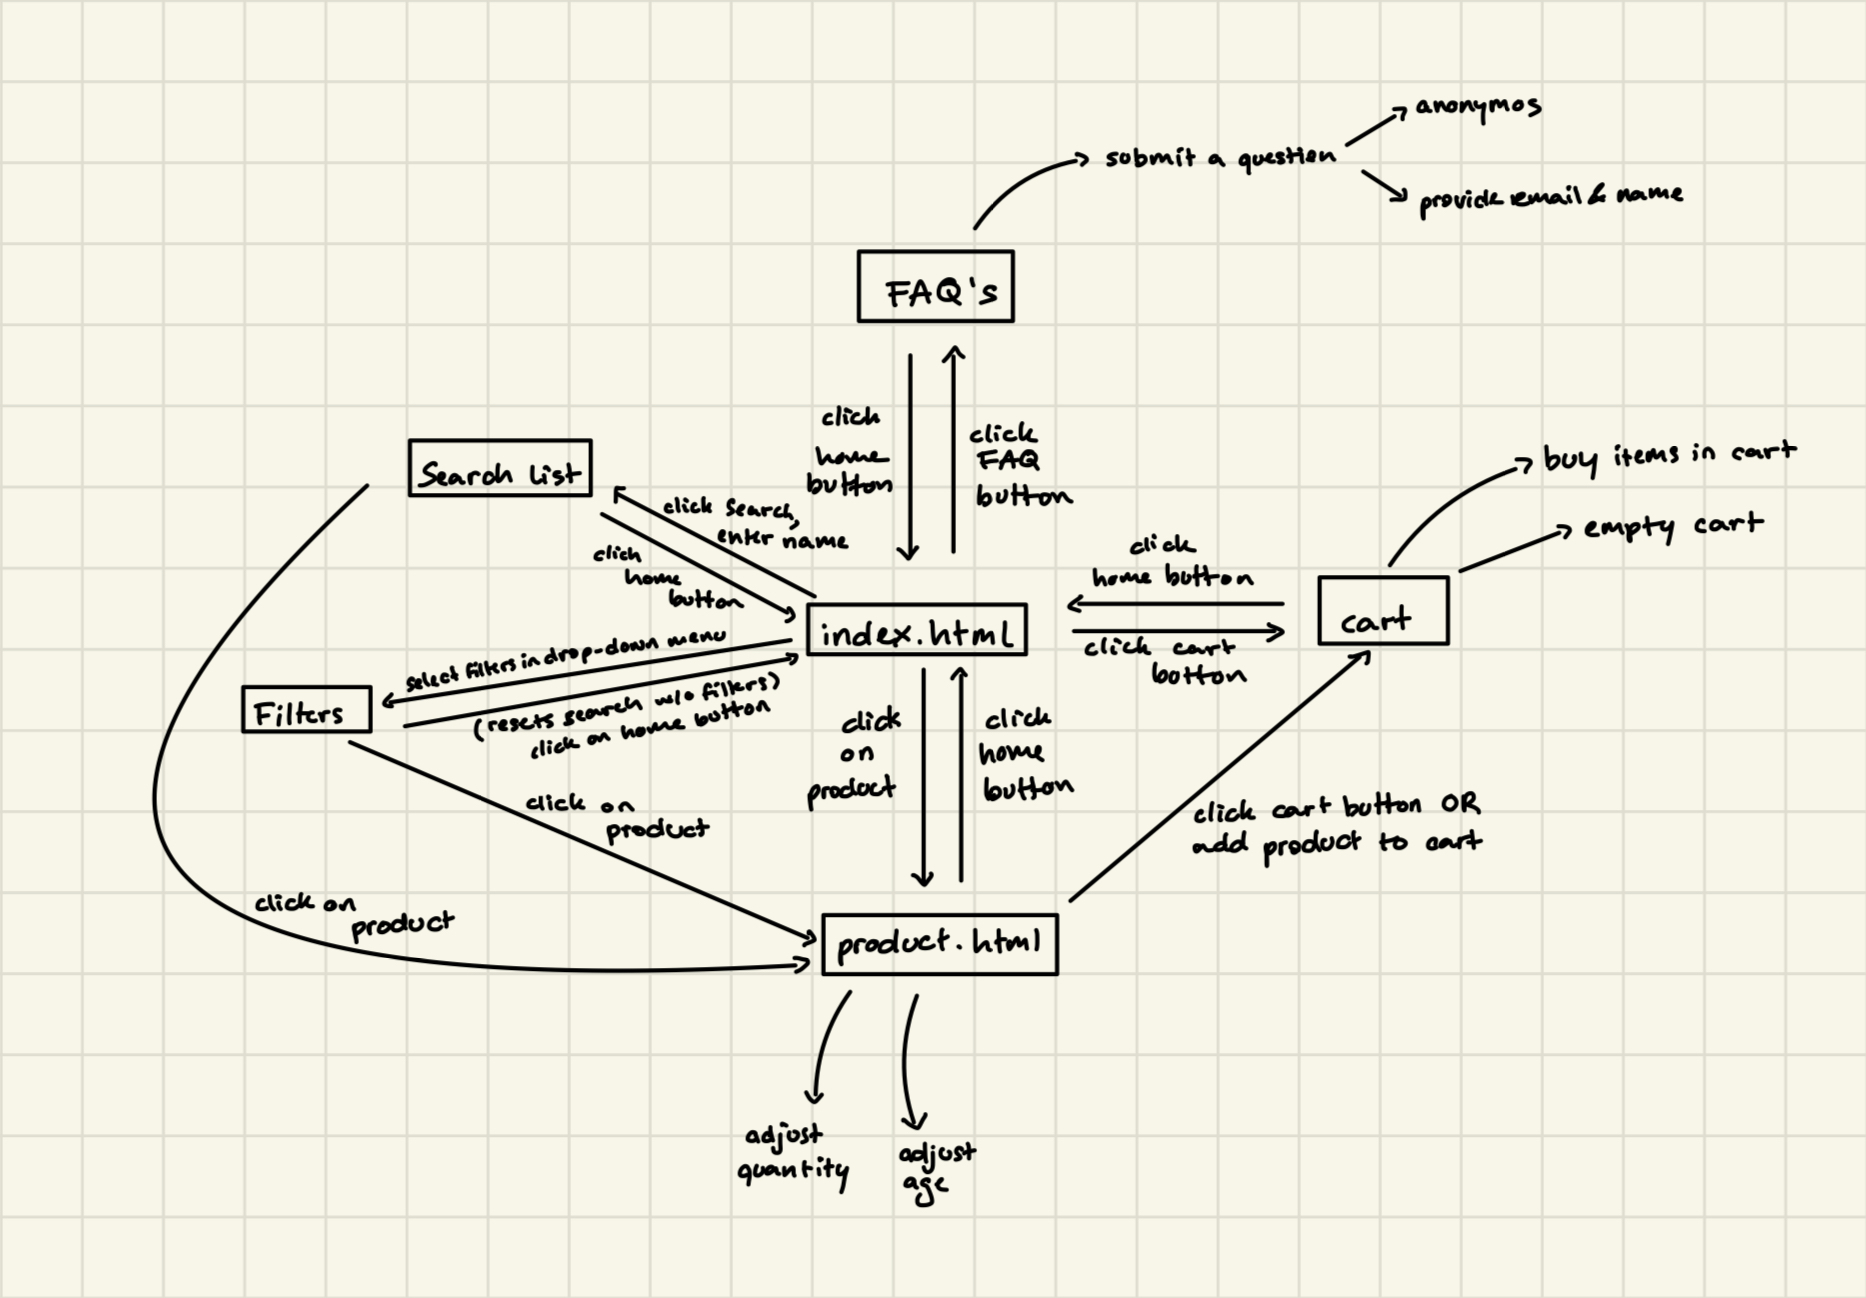 anonymos
submit a question
provide email & name
FAQ's
click
home
button
click
FAQ
button
Search List
click search,
enter name
click
home
button
buy items in cart
empty cart
click
home button
cart
click cart
button
index.html
select filters in drop-down menu
Filters
(resets search w/o filters)
click on home button
click
on
product
click
home
button
click on
product
click cart button OR
add product to cart
click on
product
product.html
adjust
quantity
adjust
age